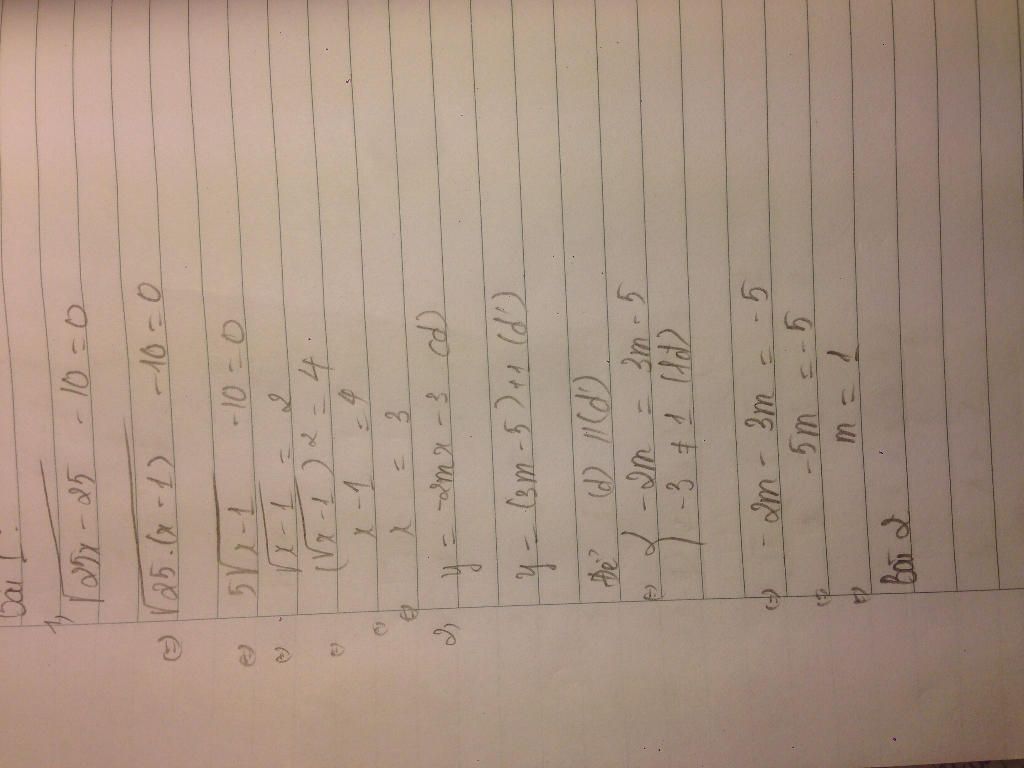 Bài 1:
1, √25x - 25 - 10 = 0
⇔ √25.(x - 1) - 10 = 0
⇔ 5√x - 1 - 10 = 0
⇔ √x - 1 = 2
⇔ (√x - 1)2 = 4
⇔ x - 1 = 4
⇔ x = 3
2, y = -2mx - 3 (d)
y = (3m - 5) + 1 (d')
Để (d) // (d')
⇔ { -2m = 3m - 5
-3 ≠ 1 (lđ)
⇔ -2m - 3m = -5
⇔ -5m = -5
⇔ m = 1
Bài 2